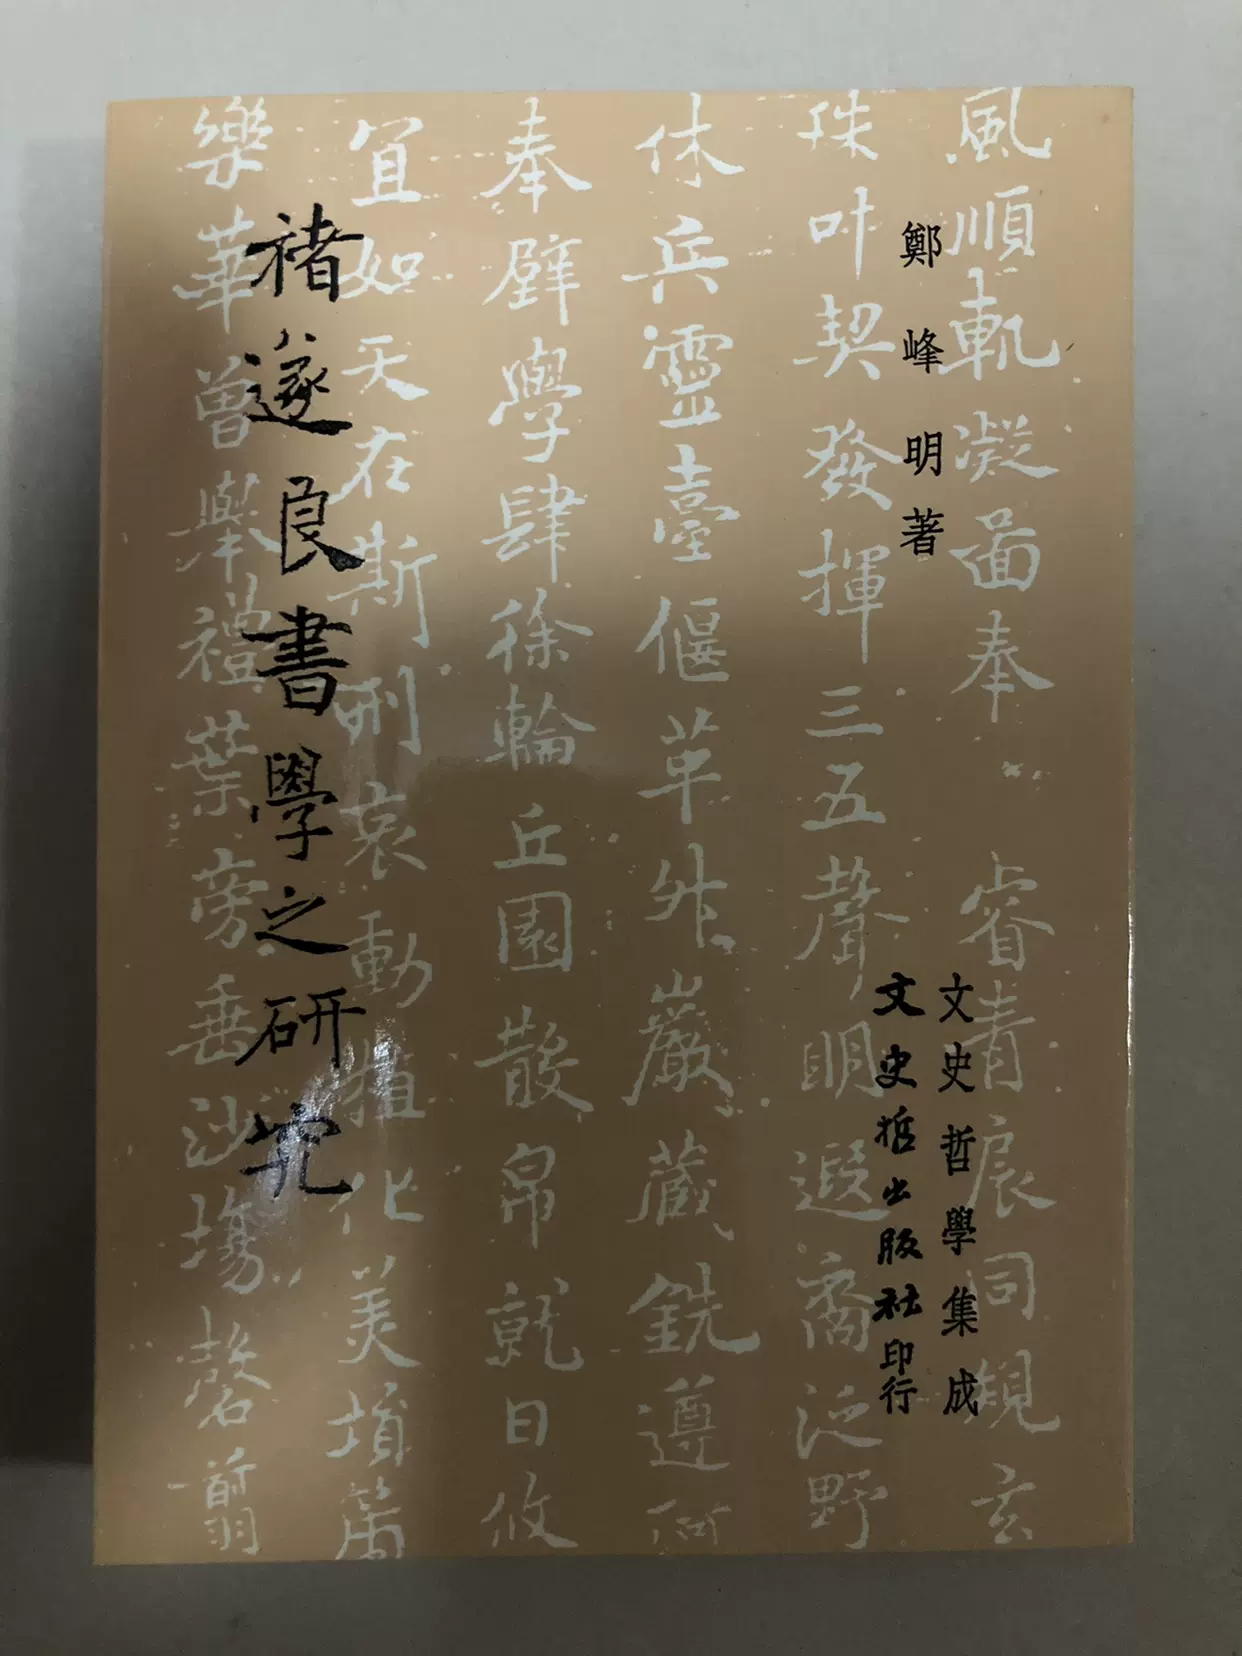 風順軌凝圖奉 睿情扆同規玄
殊叶契發揮三五聲明遐裔泛野
休兵靈臺偃草外巖藏銑遵河
奉璧學肆徐輪丘園散帛就日攸
宜如天在斯刑哀動植化美墳
樂華曾舉禮葉旁垂沙場罄翦
鄭峰明著
文史哲學集成
文史哲出版社印行
褚遂良書學之研究